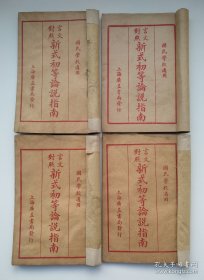 國民學校適用
言文對照
新式初等論說指南
上海廣益書局發行
國民學校適用
言文對照
新式初等論說指南
上海廣益書局發行
國民學校適用
言文對照
新式初等論說指南
上海廣益書局發行
國民學校適用
言文對照
新式初等論說指南
上海廣益書局發行